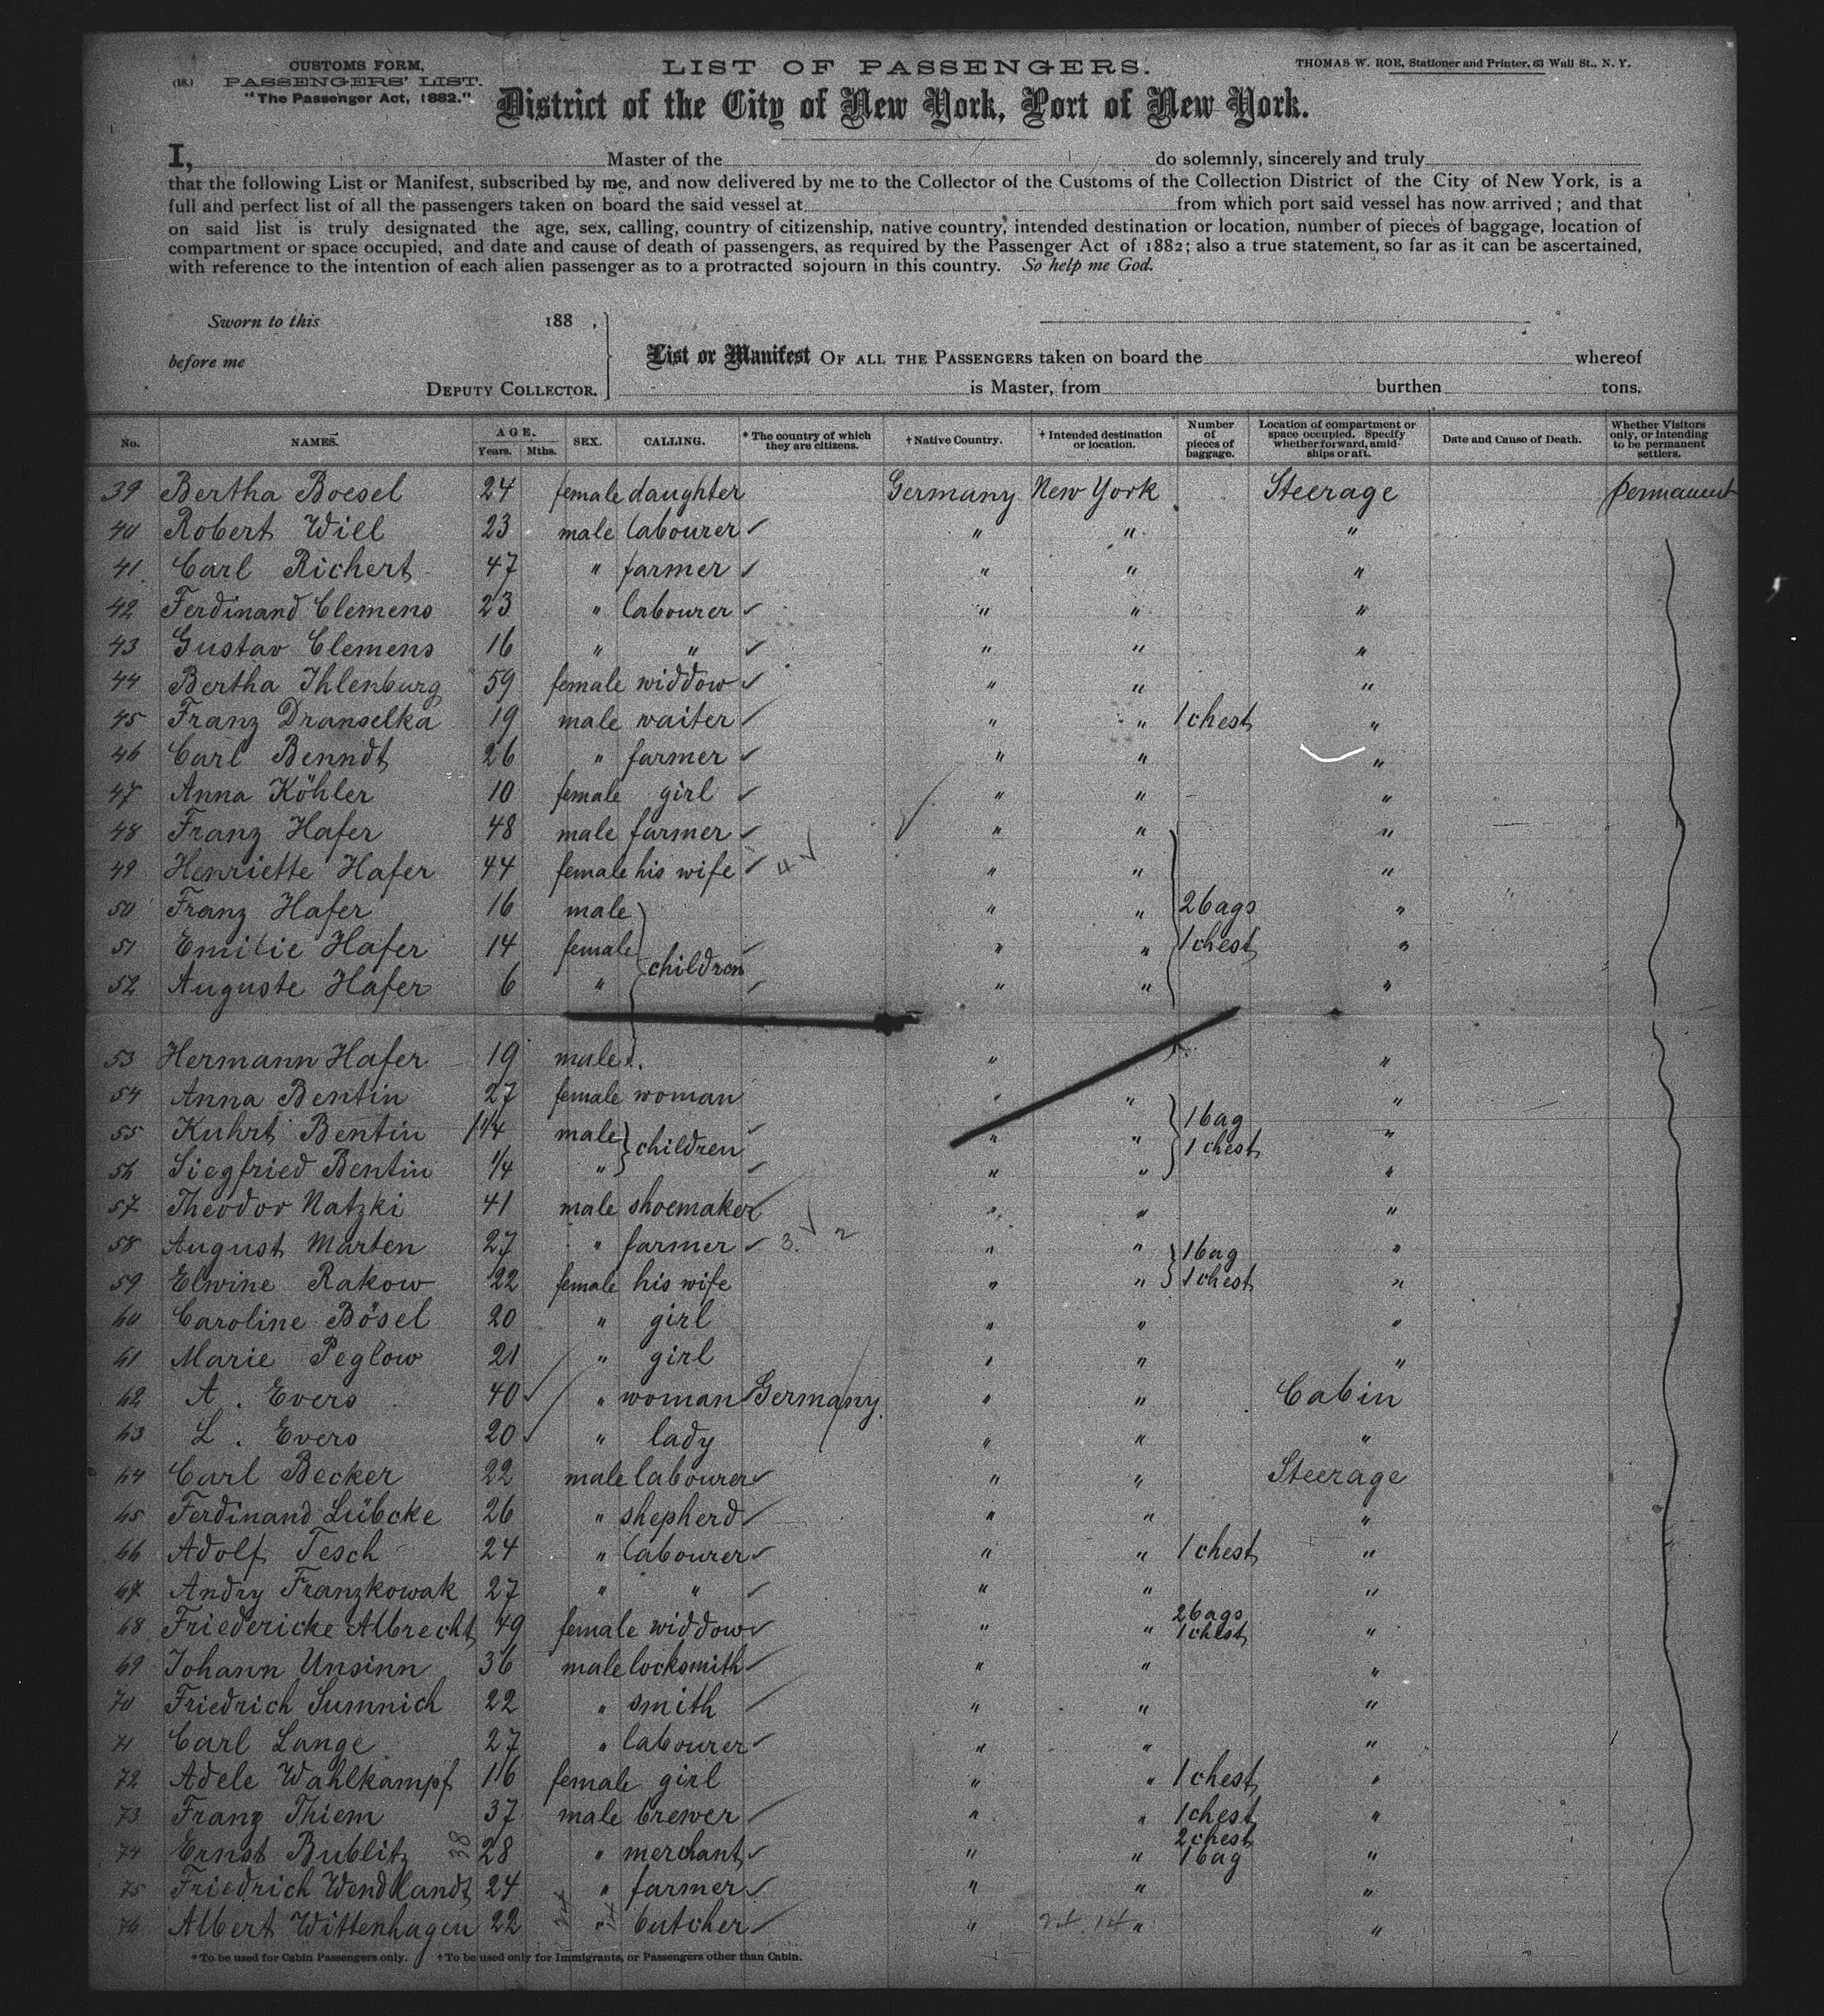 CUSTOMS FORM,
(18.) PASSENGERS' LIST.
"The Passenger Act, 1882."
LIST OF PASSENGERS.
THOMAS W. ROE, Stationer and Printer, 63 Wall St., N. Y.
District of the City of New York, Port of New York.
I, Master of the do solemnly, sincerely and truly
that the following List or Manifest, subscribed by me, and now delivered by me to the Collector of the Customs of the Collection District of the City of New York, is a
full and perfect list of all the passengers taken on board the said vessel at from which port said vessel has now arrived; and that
on said list is truly designated the age, sex, calling, country of citizenship, native country, intended destination or location, number of pieces of baggage, location of
compartment or space occupied, and date and cause of death of passengers, as required by the Passenger Act of 1882; also a true statement, so far as it can be ascertained,
with reference to the intention of each alien passenger as to a protracted sojourn in this country. So help me God.
Sworn to this 188 ,
before me
DEPUTY COLLECTOR.
List or Manifest OF ALL THE PASSENGERS taken on board the whereof
is Master, from burthen tons.
No. NAMES. AGE. Years. Mths. SEX. CALLING. * The country of which they are citizens. † Native Country. † Intended destination or location. Number of pieces of baggage. Location of compartment or space occupied. Specify whether forward, amidships or aft. Date and Cause of Death. Whether Visitors only, or intending to be permanent settlers.
39 Bertha Boesel 24 female daughter Germany New York Steerage permanent
40 Robert Will 23 male labourer " " "
41 Carl Richert 47 " farmer " " "
42 Ferdinand Clemens 23 " labourer " " "
43 Gustav Clemens 16 " " " " "
44 Bertha Ihlenburg 59 female widdow " " "
45 Franz Dranselka 19 male waiter " " 1 chest "
46 Carl Benndt 26 " farmer " " "
47 Anna Köhler 10 female girl " " "
48 Franz Hafer 48 male farmer " " "
49 Henriette Hafer 44 female his wife 4 " " "
50 Franz Hafer 16 male " " 2 bags "
51 Emilie Hafer 14 female children " " 1 chest "
52 Auguste Hafer 6 " " " "
53 Hermann Hafer 19 male " "
54 Anna Bentin 27 female woman " " "
55 Kuhrt Bentin 1 1/4 male children " " 1 bag 1 chest "
56 Siegfried Bentin 1/4 " " " "
57 Theodor Natzki 41 male shoemaker " " "
58 August Marten 27 " farmer 3. 2 " " 1 bag "
59 Elwine Rakow 22 female his wife " " 1 chest "
60 Caroline Bösel 20 " girl " " "
61 Marie Peglow 21 " girl " " "
62 A. Evers 40 " woman Germany " " Cabin
63 L. Evers 20 " lady " " "
64 Carl Becker 22 male labourer " " Steerage
65 Ferdinand Lübcke 26 " shepherd " " "
66 Adolf Tesch 24 " labourer " " 1 chest "
67 Andry Franzkowak 27 " " " " "
68 Friedericke Albrecht 49 female widdow " " 2 bags 1 chest "
69 Johann Unsinn 36 male locksmith " " "
70 Friedrich Sumnich 22 " smith " " "
71 Carl Lange 27 " labourer " " "
72 Adele Wahlkampf 16 female girl " " 1 chest "
73 Franz Thiem 37 male brewer " " 1 chest "
74 Ernst Bublitz 38 28 " merchant " " 2 chest 1 bag "
75 Friedrich Wendlandt 24 " farmer " " "
76 Albert Wittenhagen 22 " butcher " " "
* To be used for Cabin Passengers only. † To be used only for Immigrants, or Passengers other than Cabin.